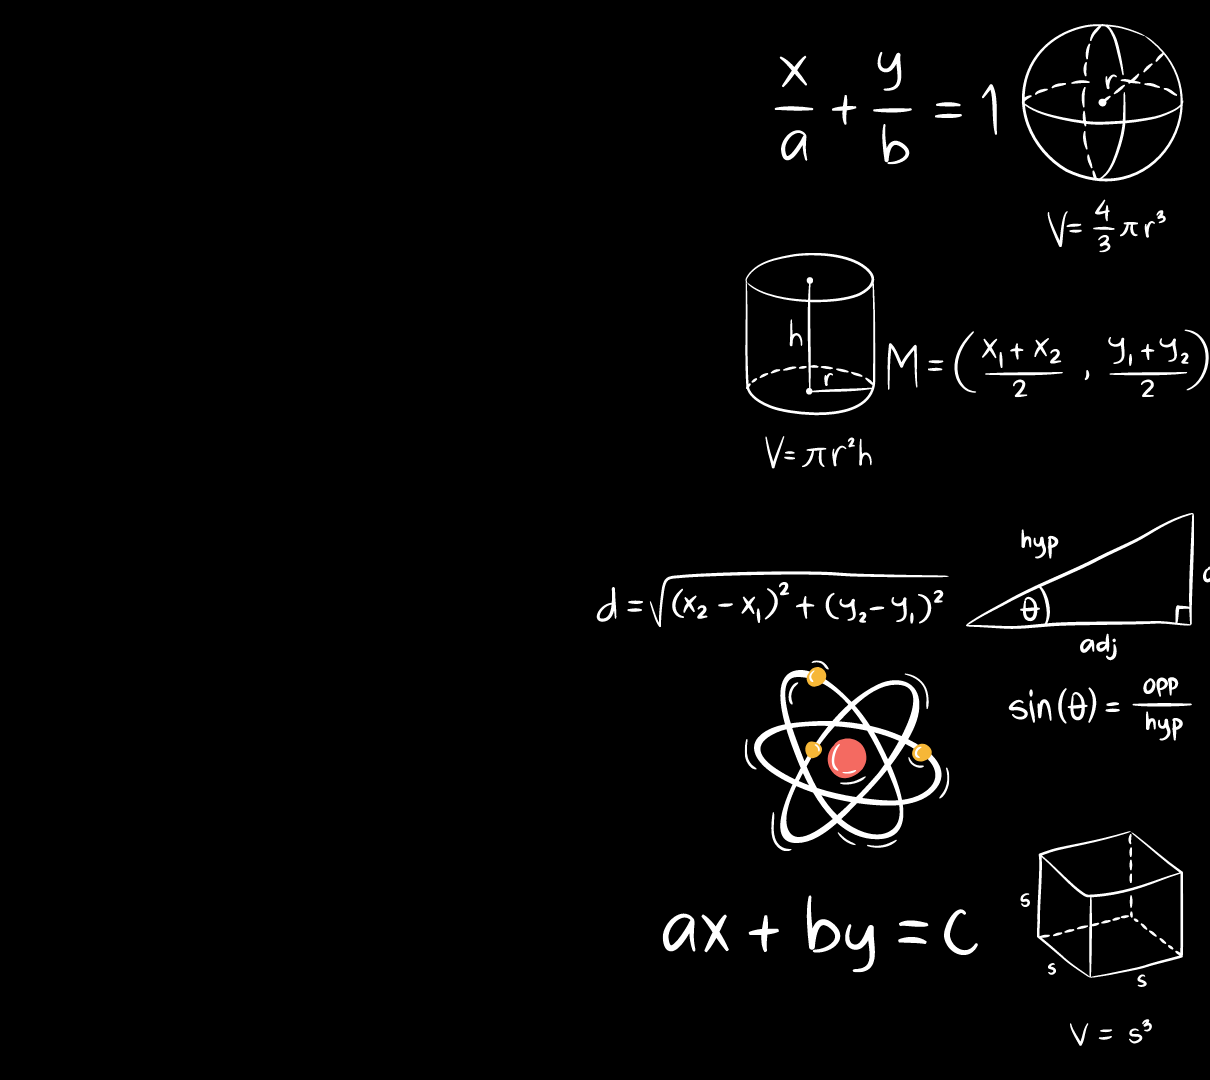 x/a + y/b = 1
r
V= 4/3 πr³
h
r
V= πr²h
M = ( x₁ + x₂ / 2 , y₁ + y₂ / 2 )
d = √(x₂ − x₁)² + (y₂ − y₁)²
hyp
θ
adj
sin(θ) = opp/hyp
ax + by = c
s
s
s
V = s³